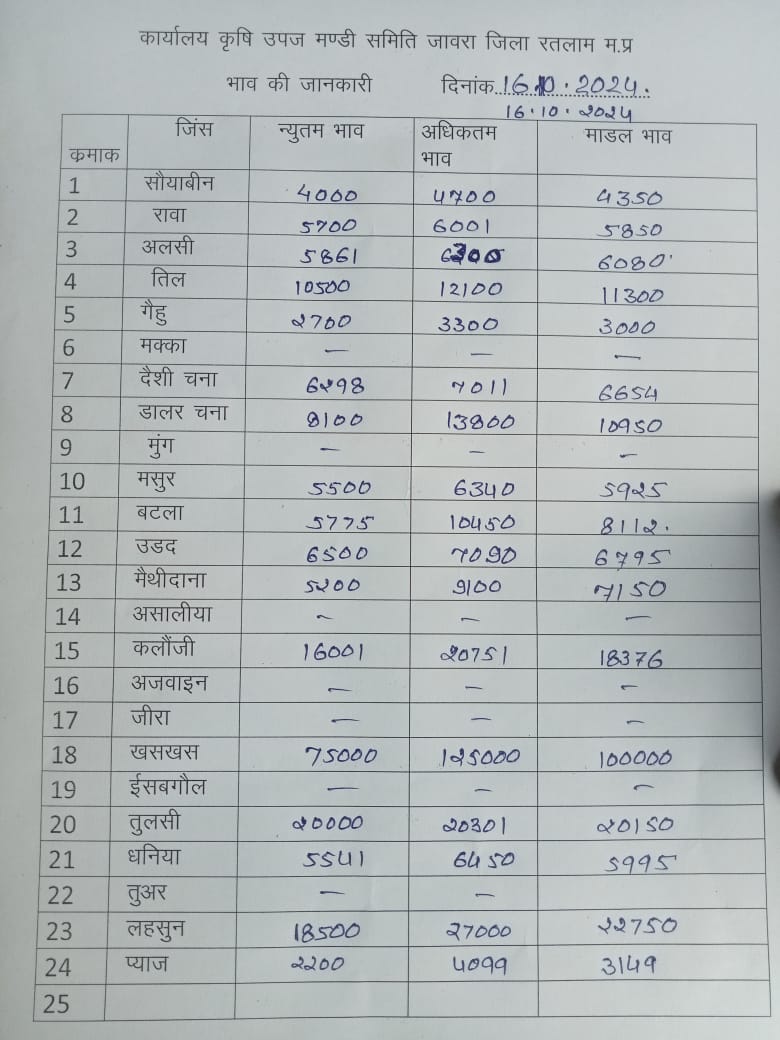 कार्यालय कृषि उपज मण्डी समिति जावरा जिला रतलाम म.प्र
भाव की जानकारी दिनांक..16.10.2024.
16.10.2024
कमाक जिंस न्युतम भाव अधिकतम भाव माडल भाव
1 सौयाबीन 4000 4700 4350
2 रावा 5700 6001 5850
3 अलसी 5861 6300 6080
4 तिल 10500 12100 11300
5 गैहु 2700 3300 3000
6 मक्का — — —
7 दैशी चना 6298 7011 6654
8 डालर चना 8100 13800 10950
9 मुंग — — —
10 मसुर 5500 6340 5925
11 बटला 5775 10450 8112.
12 उडद 6500 7090 6795
13 मैथीदाना 5200 9100 7150
14 असालीया — — —
15 कलौंजी 16001 20751 18376
16 अजवाइन — — —
17 जीरा — — —
18 खसखस 75000 125000 100000
19 ईसबगौल — — —
20 तुलसी 20000 20301 20150
21 धनिया 5541 6450 5995
22 तुअर — —
23 लहसुन 18500 27000 22750
24 प्याज 2200 4099 3149
25